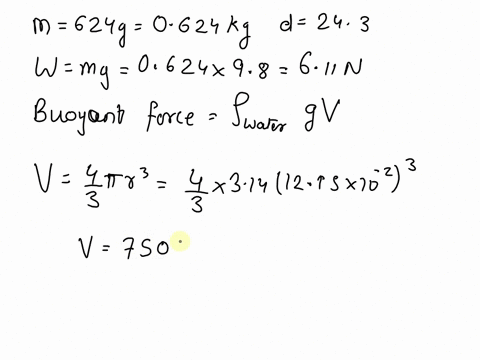 m = 624g = 0.624 kg d = 24.3
W = mg = 0.624 × 9.8 = 6.11 N
Buoyant force = ρwater gV
V = 4/3 πr³ = 4/3 × 3.14 (12.15 × 10⁻²)³
V = 750